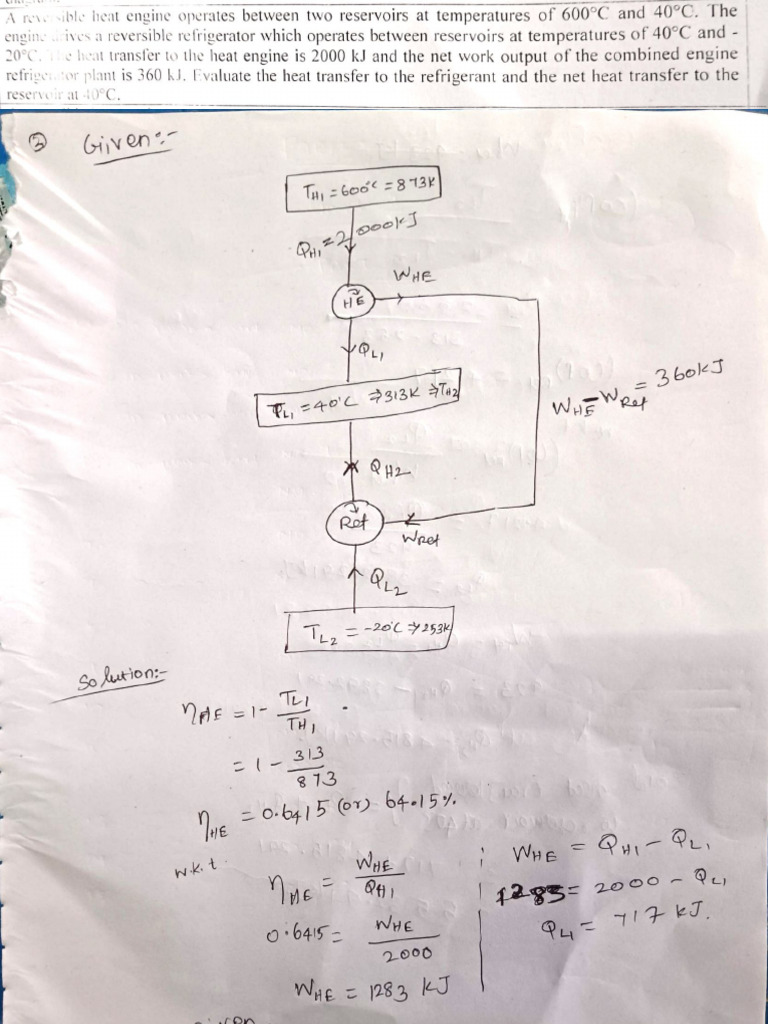 A reversible heat engine operates between two reservoirs at temperatures of 600°C and 40°C. The
engine drives a reversible refrigerator which operates between reservoirs at temperatures of 40°C and -
20°C. The heat transfer to the heat engine is 2000 kJ and the net work output of the combined engine
refrigerator plant is 360 kJ. Evaluate the heat transfer to the refrigerant and the net heat transfer to the
reservoir at 40°C.
② Given:-
TH1 = 600°C = 873K
QH1 = 2000kJ
WHE
HE
QL1
TL1 = 40°C ⇒ 313K ⇒ TH2
WHE - WRef = 360kJ
QH2
Ref
WRef
QL2
TL2 = -20°C ⇒ 253K
Solution:-
ηHE = 1 - TL1/TH1
= 1 - 313/873
ηHE = 0.6415 (or) 64.15%.
w.k.t.
ηHE = WHE/QH1
0.6415 = WHE/2000
WHE = 1283 kJ
; WHE = QH1 - QL1
1283 = 2000 - QL1
QL1 = 717 kJ.